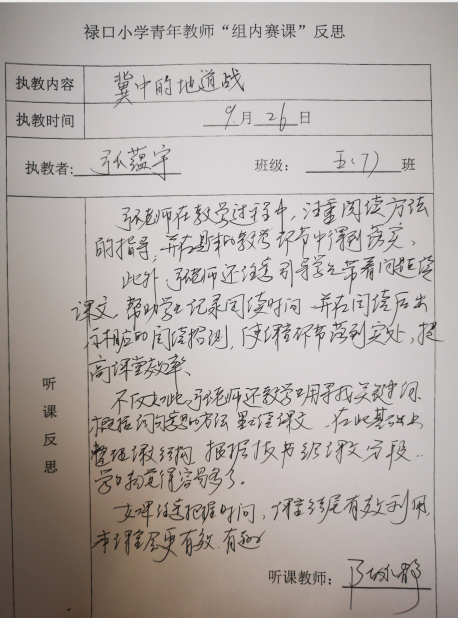 禄口小学青年教师“组内赛课”反思
执教内容 冀中的地道战
执教时间 9月26日
执教者: 张蕴宇 班级: 五(7)班
听课反思
张老师在教学过程中，注重阅读方法
的指导，并在具体的教学环节中得到落实。
此外，张老师还注意引导学生带着问题读
课文，帮助学生记录阅读时间，并在阅读后出
示相应的阅读检测，使课堂环节落到实处，提
高课堂效率。
不仅如此，张老师还教学生用寻找关键词句
概括词句意思的方法
课文 在此基础上
课文结构 根据板书给课文分段
学习就变得容易多了。
把握时间，课堂结尾有效利用
更有效、有趣
听课教师: